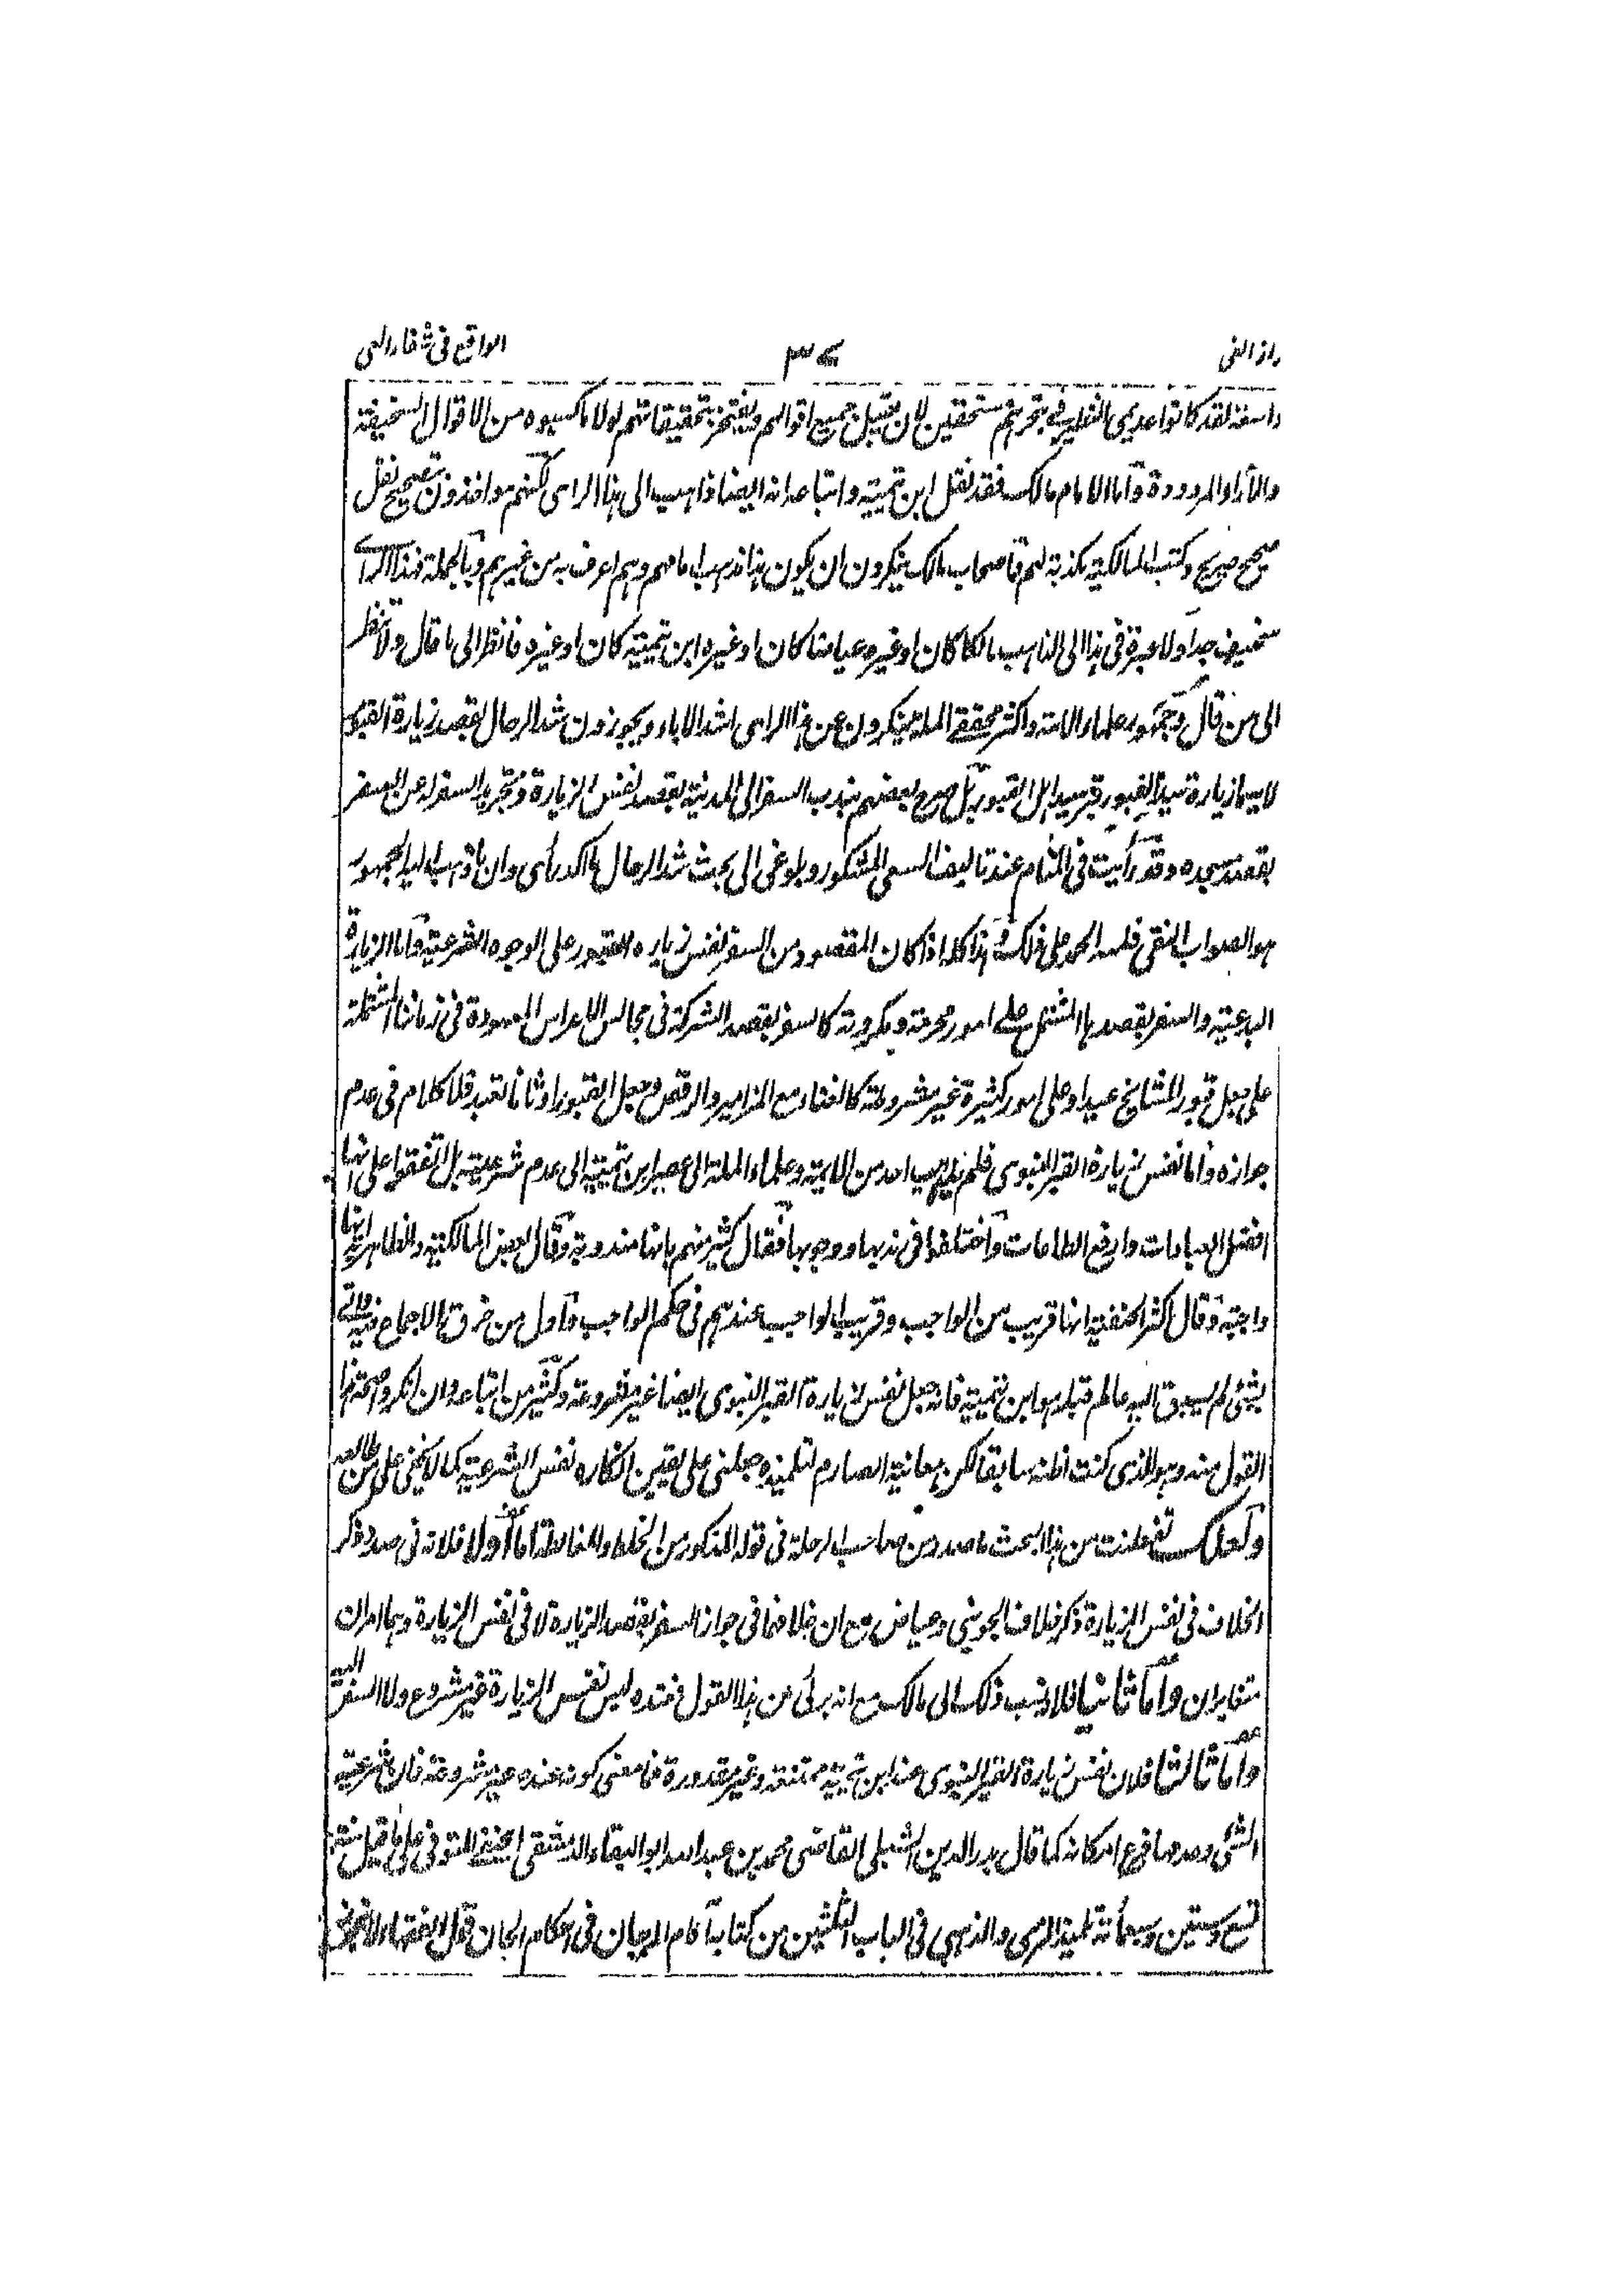 الواقع في شفاء العي ٣٧ ابراز الغي
والسفه لقد كانوا عديمي النظير في تبحرهم مستحقين لان يقبل جميع اقوالهم ويفتخر بتحقيقاتهم لولا ما كسبوه من الاقوال السخيفة
والآراء المردودة واما الامام مالك فقد نقل ابن تيمية واتباعه انه ايضا ذاهب الى هذا الراى لكنهم مواخذون بتصحيح نقل
صحيح صريح وكتب المالكية مكذبة لهم فاصحاب مالك ينكرون ان يكون هذا مذهب امامهم وهم اعرف به من غيرهم وبالجملة فهذا الرأى
سخيف جدا ولا عبرة في هذا الى الذاهب مالكا كان او غيره عياضا كان او غيره ابن تيمية كان او غيره فانظر الى ما قال ولا تنظر
الى من قال وجمهور علماء الامة واكثر محققي الملة ينكرون عن هذا الراى اشد الاباء ويجوزون شد الرحال بقصد زيارة القبور
لا سيما زيارة سيد القبور قبر سيد اهل القبور بل صرح بعضهم بندب السفر الى المدنية بقصد نفس الزيارة وتجريد السفر له عن السفر
بقصد مسجده وقد رأيت في المنام عند تاليف السعى المشكور وبلوغى الى بحث شد الرحال ما اكد رأى وان ما ذهب اليه الجمهور
هو الصواب النقى فلله الحمد على ذلك وهذا كله اذا كان المقصود من السفر نفس زيارة القبور على الوجوه الشرعية واما الزيارة
البدعية والسفر بقصدها المشتمل على امور محرمة ومكروهة كالسفر بقصد الشركة في مجالس الاعراس المعهودة في زماننا المشتملة
على جعل قبور المشايخ عيدا وعلى امور كثيرة غير مشروعة كالغناء مع المزامير والرقص وجعل القبور اوثانا تعبد فلا كلام في عدم
جوازه واما نفس زيارة القبر النبوى فلم يذهب احد من الايمة وعلماء الملة الى عصر ابن تيمية الى عدم شرعيته بل اتفقوا على انها
افضل العبادات وارفع الطاعات واختلفوا في ندبها ووجوبها فقال كثير منهم بانها مندوبة وقال بعض المالكية والظاهرية انها
واجبة وقال اكثر الحنفية انها قريب من الواجب وقريب الواجب عندهم في حكم الواجب واول من خرق الاجماع فيه واتى
بشئ لم يسبق اليه عالم قبله هو ابن تيمية فانه جعل نفس زيارة القبر النبوى ايضا غير مشروعة وكثير من اتباعه وان انكروا صحة هذا
القول منه وهو الذى كنت اظنه سابقا لكن معانية الصارم لتلميذه جعلنى على يقين انكاره نفس الشرعية كما لا يخفى على من طالعه
ولعلك تفطنت من هذا البحث ما صدر من صاحب الرحلة في قوله المذكور من الخلط والمغالطة اما اولا فلانه في صدد ذكر
الخلاف في نفس الزيارة ذكر خلاف الجوينى وعياض مع ان خلافهما في جواز السفر بقصد الزيارة لا في نفس الزيارة وهما امران
متغايران واما ثانيا فلانه نسب ذلك الى مالك مع انه برئ من هذا القول فعنده ليس نفس الزيارة غير مشروع ولا السفر اليه
واما ثالثا فلان نفس زيارة القبر النبوى عند ابن تيمية ممتنعة وغير مقدورة فما معنى كونه عنده غير مشروعة فان شرعية
الشئ وعدمها فرع امكانه كما قال بدر الدين الشبلى القاضى محمد بن عبد الله ابو البقاء الدمشقى الحنفي المتوفى على ما قيل سنة
تسع وستين وسبعمائة تلميذ المزى والذهبى في الباب الثلثين من كتابه آكام المرجان في احكام الجان قول الفقهاء